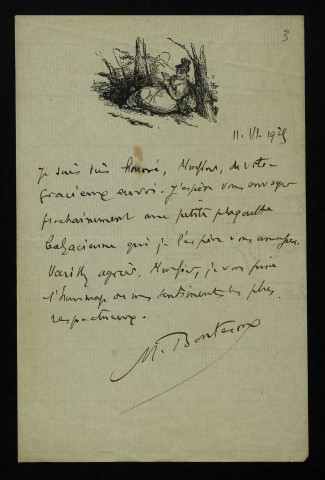 3
11. VI. 1925
Je suis très honoré, Monsieur, de votre
gracieux envoi. J'espère vous envoyer
prochainement une petite plaquette
balzacienne qui je l'espère vous amusera.
Veuillez agréer, Monsieur, je vous prie
l'hommage de mes sentiments les plus
respectueux.
M. Bouteron